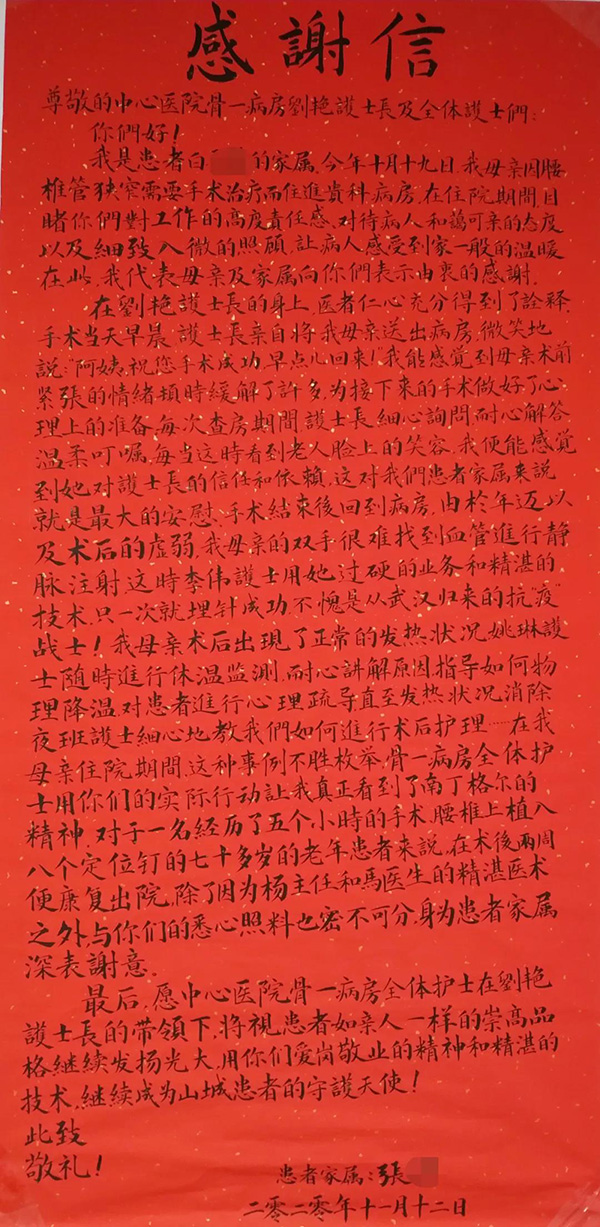 感謝信
尊敬的中心医院骨一病房劉艳護士長及全体護士們:
你們好!
我是患者白 的家属,今年十月十九日,我母亲因腰
椎管狭窄需要手术治疗而住進貴科病房,在住院期間,目
睹你們對工作的高度責任感,对待病人和謁可亲的态度
以及細致入微的照顧,让病人感受到家一般的温暖
在此,我代表母亲及家属向你們表示由衷的感謝.
在劉艳護士長的身上,医者仁心充分得到了詮釋,
手术当天早晨,護士長亲自将我母亲送出病房,微笑地
説:"阿姨,祝您手术成功,早点儿回来!"我能感覚到母亲术前
紧張的情緒頓時緩解了許多,为接下来的手术做好了心
理上的准备,每次查房期間,護士長細心詢問,耐心解答
温柔叮嘱,每当这時看到老人脸上的笑容,我便能感覚
到她对護士長的信任和依賴,这对我們患者家属来説
就是最大的安慰、手术結束後回到病房,由於年迈以
及术后的虚弱,我母亲的双手很难找到血管進行静
脉注射,这時李伟護士用她过硬的业务和精湛的
技术,只一次就埋针成功,不愧是从武汉归来的"抗疫"
战士!我母亲术后出現了正常的发热状况,姚琳護
士随時進行体温监測,耐心讲解原因,指导如何物
理降温,对患者進行心理疏导直至发热状况消除
夜班護士細心地教我們如何進行术后护理……在我
母亲住院期間,这种事例不胜枚举,骨一病房全体护
士用你们的实际行动让我真正看到了南丁格尔的
精神,对于一名经历了五个小時的手术,腰椎上植入
八个定位钉的七十多岁的老年患者来説,在术後两周
便康复出院,除了因为杨主任和馬医生的精湛医术
之外,与你们的悉心照料也密不可分,身为患者家属
深表謝意.
最后,愿中心医院骨一病房全体护士在劉艳
護士長的带領下,将視患者如亲人一样的崇高品
格継续发扬光大,用你们爱岗敬业的精神和精湛的
技术,継续成为山城患者的守護天使!
此致
敬礼!
患者家属:張
二零二零年十一月十二日